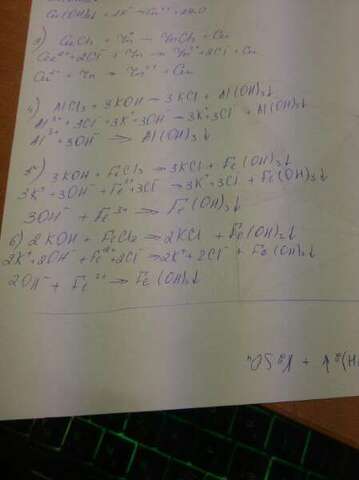 3) CuCl₂ + Zn → ZnCl₂ + Cu
Cu²⁺ + 2Cl⁻ + Zn → Zn²⁺ + 2Cl⁻ + Cu
Cu²⁺ + Zn → Zn²⁺ + Cu
4) AlCl₃ + 3KOH → 3KCl + Al(OH)₃↓
Al³⁺ + 3Cl⁻ + 3K⁺ + 3OH⁻ → 3K⁺ + 3Cl⁻ + Al(OH)₃↓
Al³⁺ + 3OH⁻ → Al(OH)₃↓
5) 3KOH + FeCl₃ → 3KCl + Fe(OH)₃↓
3K⁺ + 3OH⁻ + Fe³⁺ + 3Cl⁻ → 3K⁺ + 3Cl⁻ + Fe(OH)₃↓
3OH⁻ + Fe³⁺ → Fe(OH)₃↓
6) 2KOH + FeCl₂ → 2KCl + Fe(OH)₂↓
2K⁺ + 2OH⁻ + Fe²⁺ + 2Cl⁻ → 2K⁺ + 2Cl⁻ + Fe(OH)₂↓
2OH⁻ + Fe²⁺ → Fe(OH)₂↓